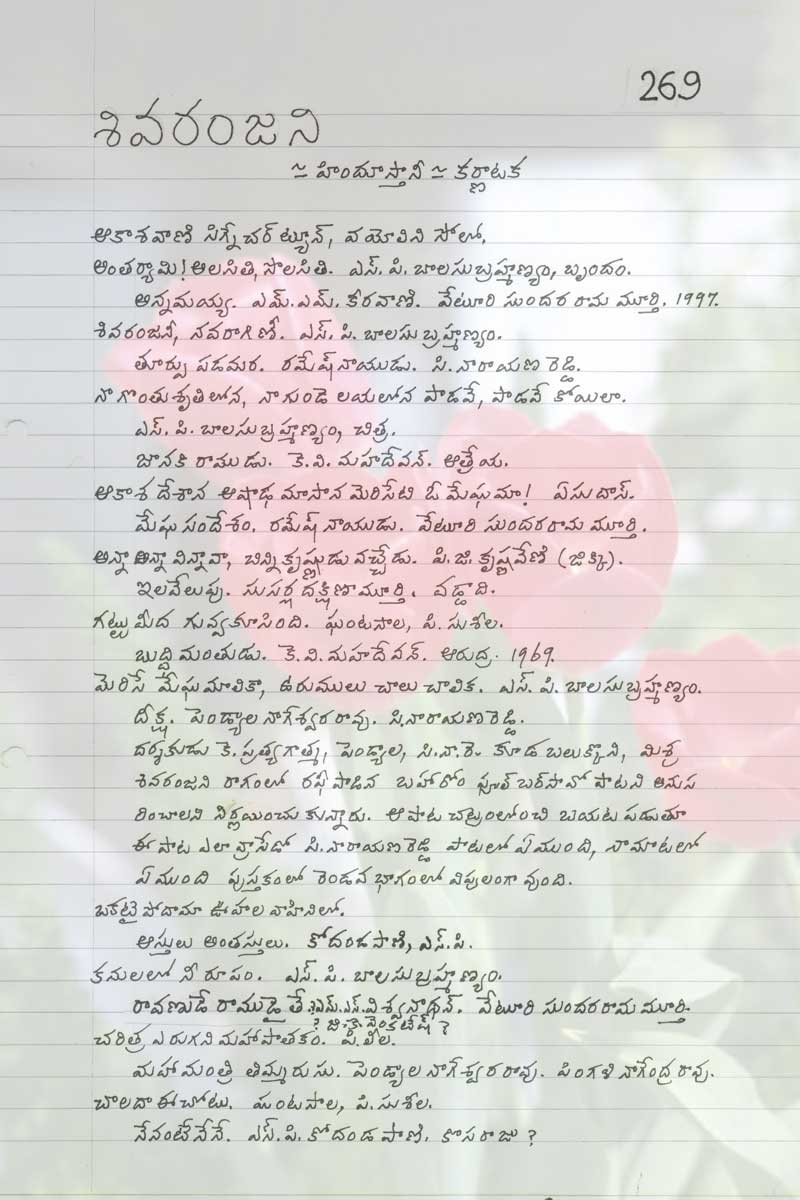 269
శివరంజని
≃ హిందూస్తానీ ≃ కర్ణాటక
ఆకాశవాణి సిగ్నేచర్ ట్యూన్, వయోలిన్ సోలో.
అంతర్యామి! అలసితి, సొలసితి. ఎస్. పి. బాలసుబ్రహ్మణ్యం, బృందం.
అన్నమయ్య. ఎమ్.ఎమ్. కీరవాణి. వేటూరి సుందర రామ మూర్తి. 1997.
శివరంజనీ, నవరాగిణీ. ఎస్. పి. బాలసుబ్రహ్మణ్యం.
తూర్పు పడమర. రమేష్ నాయుడు. సి. నారాయణ రెడ్డి.
నా గొంతు శృతిలోన, నా గుండె లయలోన పాడవే, పాడవే కోయిలా.
ఎస్. పి. బాలసుబ్రహ్మణ్యం, చిత్ర.
జానకి రాముడు. కె. వి. మహదేవన్. ఆత్రేయ.
ఆకాశ దేశాన ఆషాఢ మాసాన మెరిసేటి ఓ మేఘమా! ఏసుదాస్.
మేఘ సందేశం. రమేష్ నాయుడు. వేటూరి సుందరరామ మూర్తి.
అన్నా అన్నా విన్నావా, చిన్ని కృష్ణుడు వచ్చేడు. పి. జి. కృష్ణవేణి (జిక్కి).
ఇలవేలుపు. సుసర్ల దక్షిణామూర్తి. వడ్డాది.
గట్టుమీద గువ్వ కూసింది. ఘంటసాల, పి. సుశీల.
బుద్ధిమంతుడు. కె. వి. మహదేవన్. ఆరుద్ర. 1969.
మెరిసే మేఘమాలికా, ఉరుములు చాలు చాలిక. ఎస్. పి. బాలసుబ్రహ్మణ్యం.
దీక్ష. పెండ్యాల నాగేశ్వరరావు. సి. నారాయణరెడ్డి.
దర్శకుడు కె. ప్రత్యగాత్మ, పెండ్యాల, సి.నా.రె. కూడ బలుక్కొని, మిశ్ర
శివరంజని రాగంలో రఫీ పాడిన బహారోం ఫూల్ బర్సావో పాటని అనుస
రించాలని నిర్ణయించు కున్నారు. ఆ పాట చట్రంలోంచి బయట పడుతూ
ఈ పాట ఎలా వ్రాసేడో సి. నారాయణ రెడ్డి పాటలో ఏముంది, నా మాటలో
ఏముంది పుస్తకంలో రెండవ భాగంలో విపులంగా వుంది.
ఒకటై పోదామా ఊహల వాహినిలో.
ఆస్తులు అంతస్తులు. కోదండపాణి, ఎస్.పి.
కనులలో నీ రూపం. ఎస్. పి. బాలసుబ్రహ్మణ్యం.
రావణుడే రాముడై తే. ?ఎమ్.ఎస్. విశ్వనాథన్. వేటూరి సుందరరామ మూర్తి.
? జి.కె. వెంకటేష్ ?
చరిత్ర ఎరుగని మహాపాతకం. పి. లీల.
మహామంత్రి తిమ్మరుసు. పెండ్యాల నాగేశ్వరరావు. పింగళి నాగేంద్రరావు.
చాలదా ఈ చోటు. ఘంటసాల, పి. సుశీల.
నేనంటే నేనే. ఎస్. పి. కోదండ పాణి. కొసరాజు ?